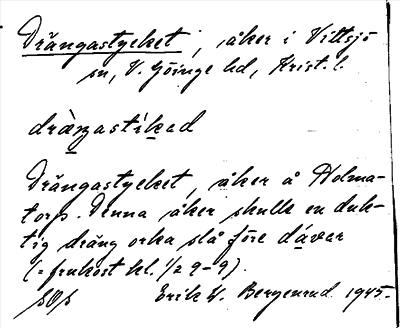 Drängastycket, åker i Vittsjö
sn, V. Göinge hd, Krist. l.
drängastikad
Drängastycket, åker å Holma-
torp. Denna åker skulle en duk-
tig dräng orka slå före dávar
(= frukost kl. 1/2 9-9).
Erik W. Bergenrud 1945.